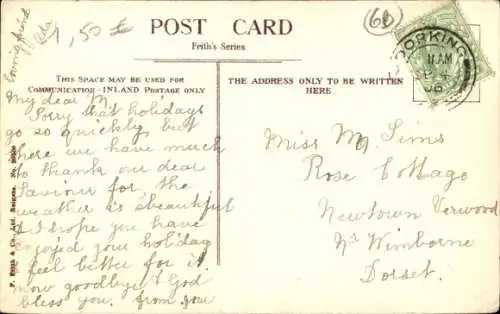 loving friend
Ada
1,50 £
POST CARD
Frith's Series
62
DORKING
11 AM
06
THIS SPACE MAY BE USED FOR
COMMUNICATION - INLAND POSTAGE ONLY
THE ADDRESS ONLY TO BE WRITTEN
HERE
My dear M.
Sorry that holidays
go so quickly, but
here we have much
to thank our dear
Saviour for the
weather is beautiful
I hope you have
enjoyed your holiday
& feel better for it.
now goodbye & God
bless you. from your
Miss M. Sims
Rose Cottage
Newtown Verwood
Nr Wimborne
Dorset.
F. Frith & Co., Ltd., Reigate. No.